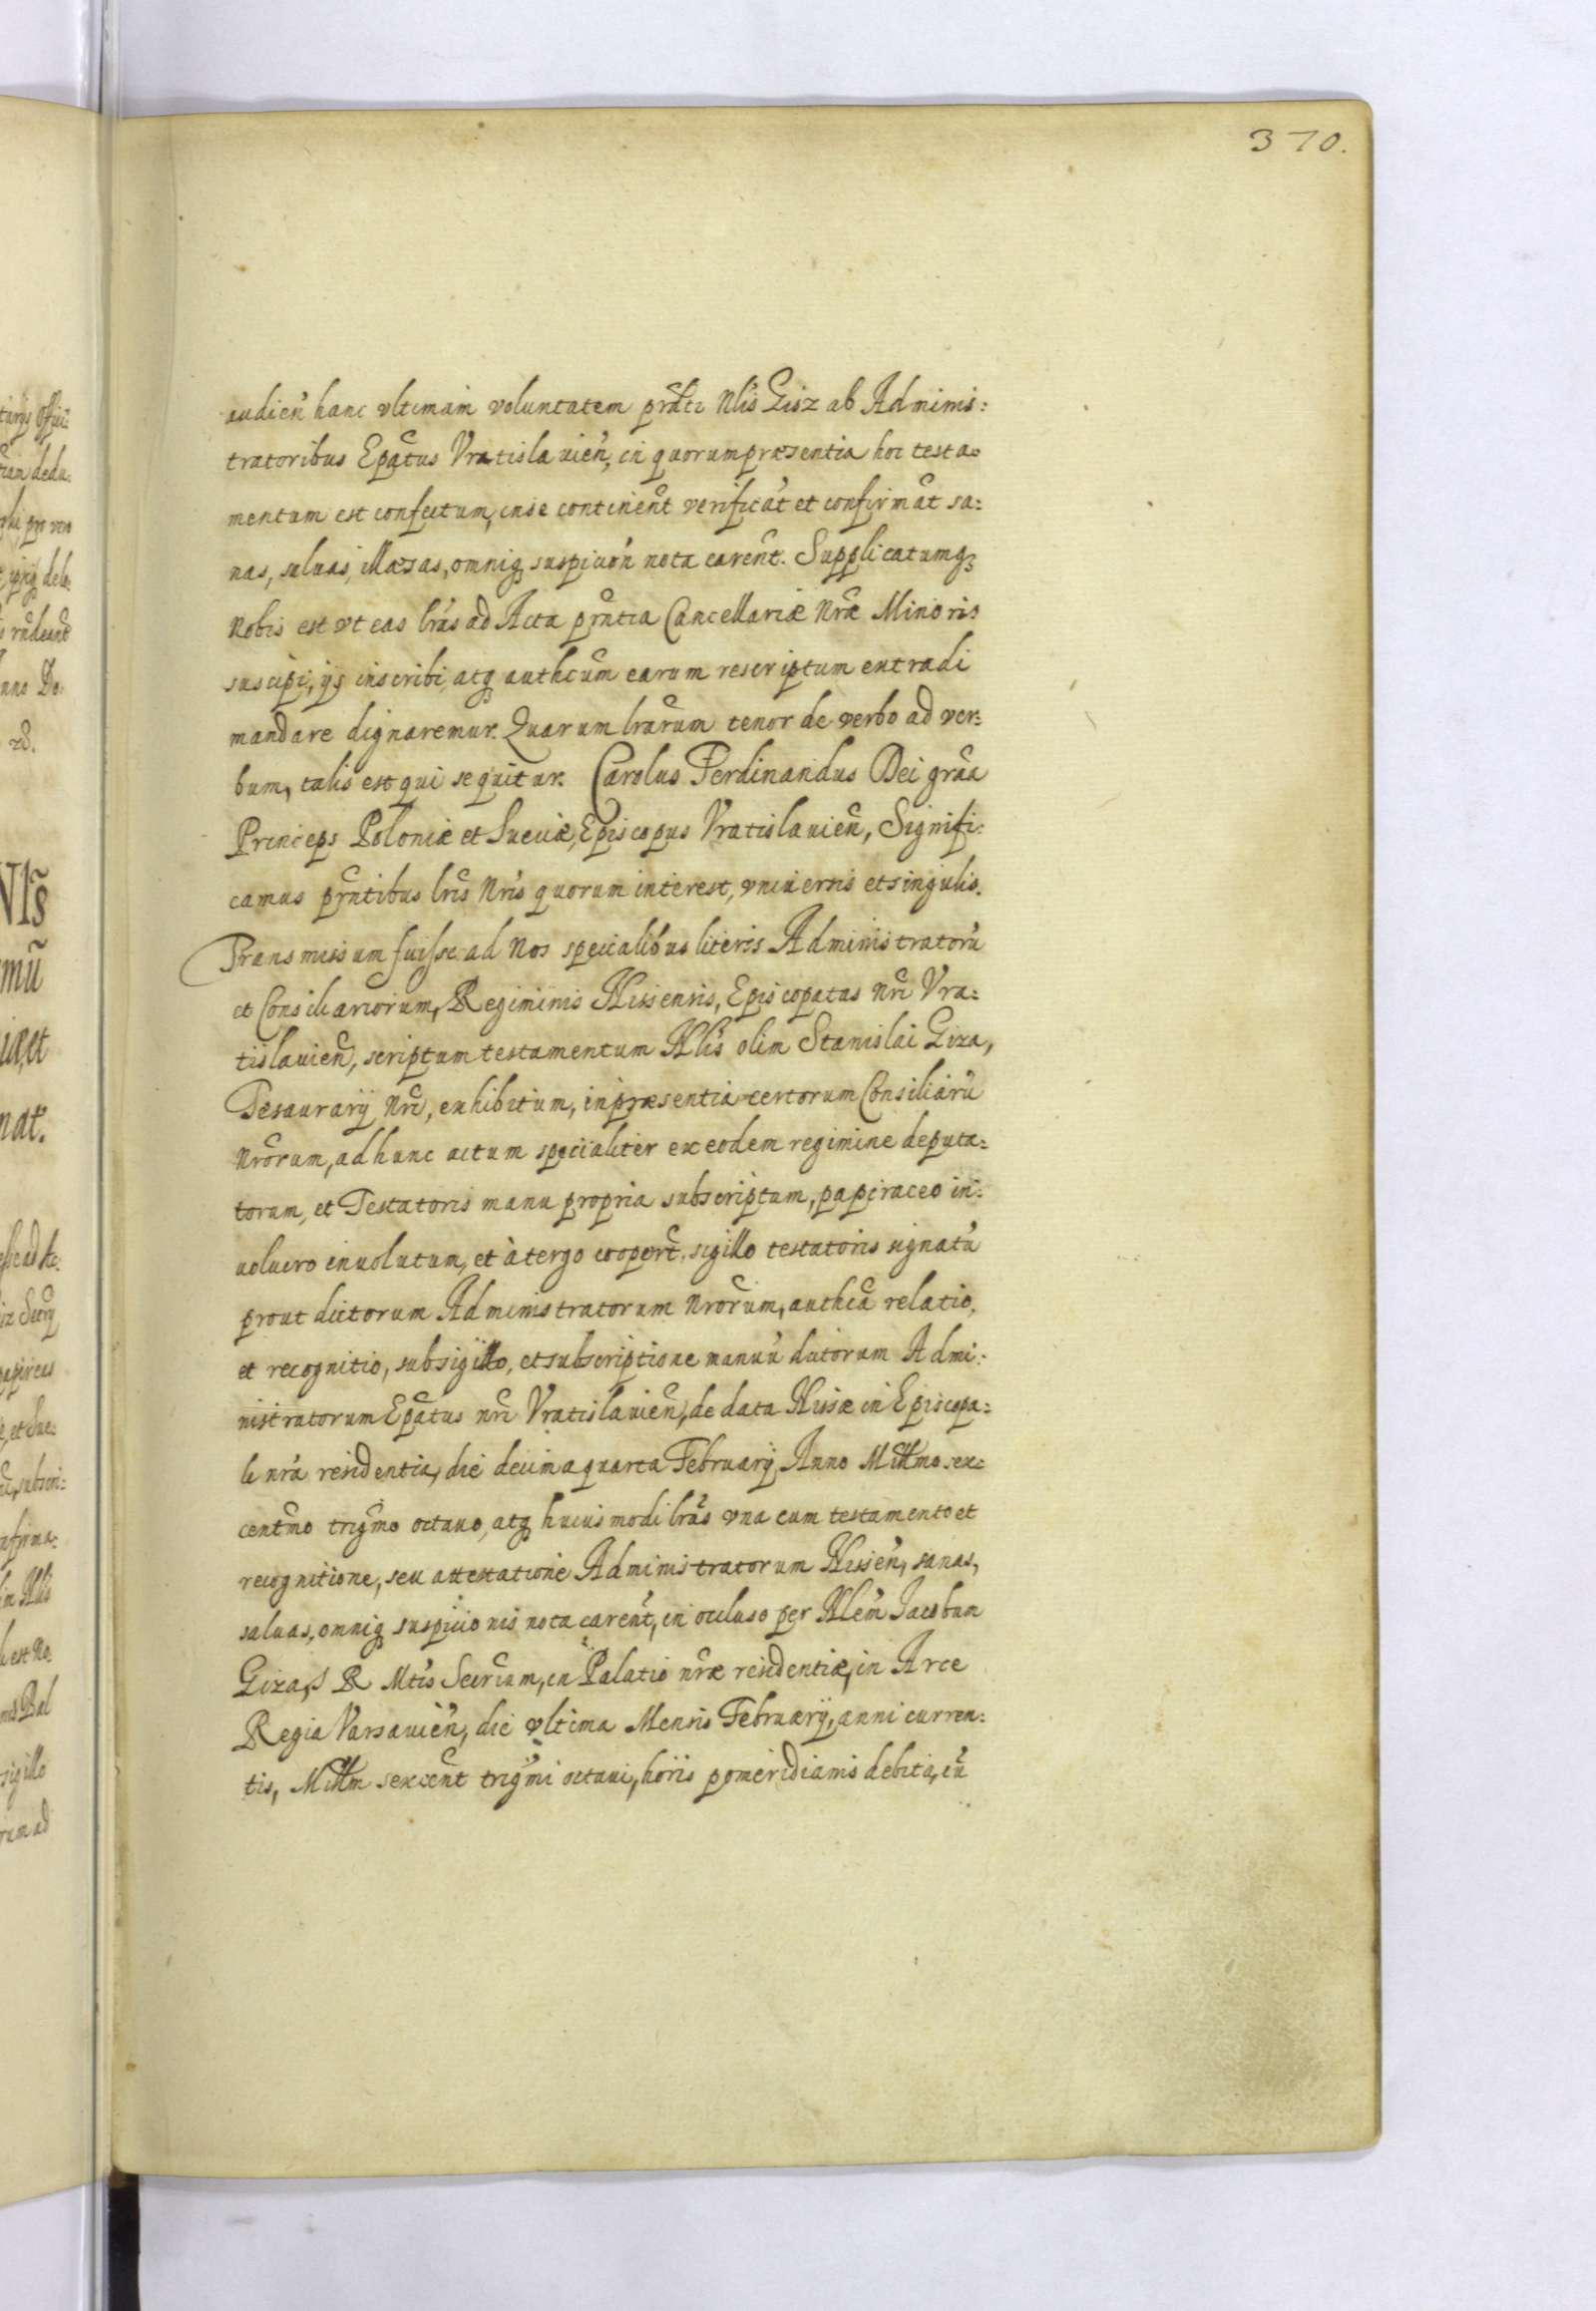 370.
audień hanc vltimam voluntatem prãti Nlis Gisz ab Adminis:
tratoribus Epãtus Vratislauień, in quorum præsentia hoc testa=
mentum est confectum, in se continent̃ verificat̃ et confirmat̃ sa:
nas, saluas, illæsas, omniq́ suspición nota carent̃. Supplicatumq́
Nobis est vt eas lrãs ad Acta prñtia Cancellariæ Nræ Minoris
suscipi, ijs inscribi, atq́ authcũm earum rescriptum extradi
mandare dignaremur. Quarum lrãrum tenor de verbo ad ver:
bum, talis est qui sequitur. Carolus Ferdinandus Dei grãa
Princeps Poloniæ et Sueciæ, Episcopus Vratislauień, Signifi:
camus prñtibus lris Nris quorum interest, vniuersis et singulis.
Transmissum fuisse ad Nos specialibus literis Administratorũ
et Consiliariorum, Regiminis Nissensis, Episcopatus Nri Vra:
tislauień, scriptum testamentum Nlis olim Stanislai Giza,
Tesaurarij Nri, exhibitum, in præsentia certorum Consiliarũ
Nrorum, ad hunc actum specialiter ex eodem regimine deputa:
torum, et Testatoris manu propria subscriptum, papiraceo in:
uolucro inuolutum, et à tergo coopert̃, sigillo testatoris signatũ
prout dictorum Administratorum Nrorum, authcã relatio,
et recognitio, sub sigillo, et subscriptione manuũ dictorum Admi:
nistratorum Epãtus nri Vratislauień, de data Nissæ in Episcopa:
li nrã residentia, die decima quarta February Anno Millmo sex:
centmo trigmo octauo, atq́ huiusmodi lrãs vna cum testamento et
recognitione, seu attestatione Administratorum Nissen, sanas,
saluas, omniq́ suspicionis nota carent̃, in occluso per Nlem Jacobum
Giza, S R Mtis Secrium, in Palatio nræ residentiæ, in Arce
Regia Varsauień, die vltima Mensis February, anni curren:
tis, Millm sexcent̃ trigmi octaui, horis pomeridianis debita, cũ